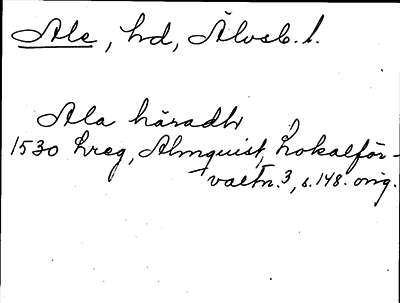 Ale, hd, Älvsb. l.
Ala häradh
1530 hreg, Almquist, Lokalför-
valtn. 3, s. 148. orig.